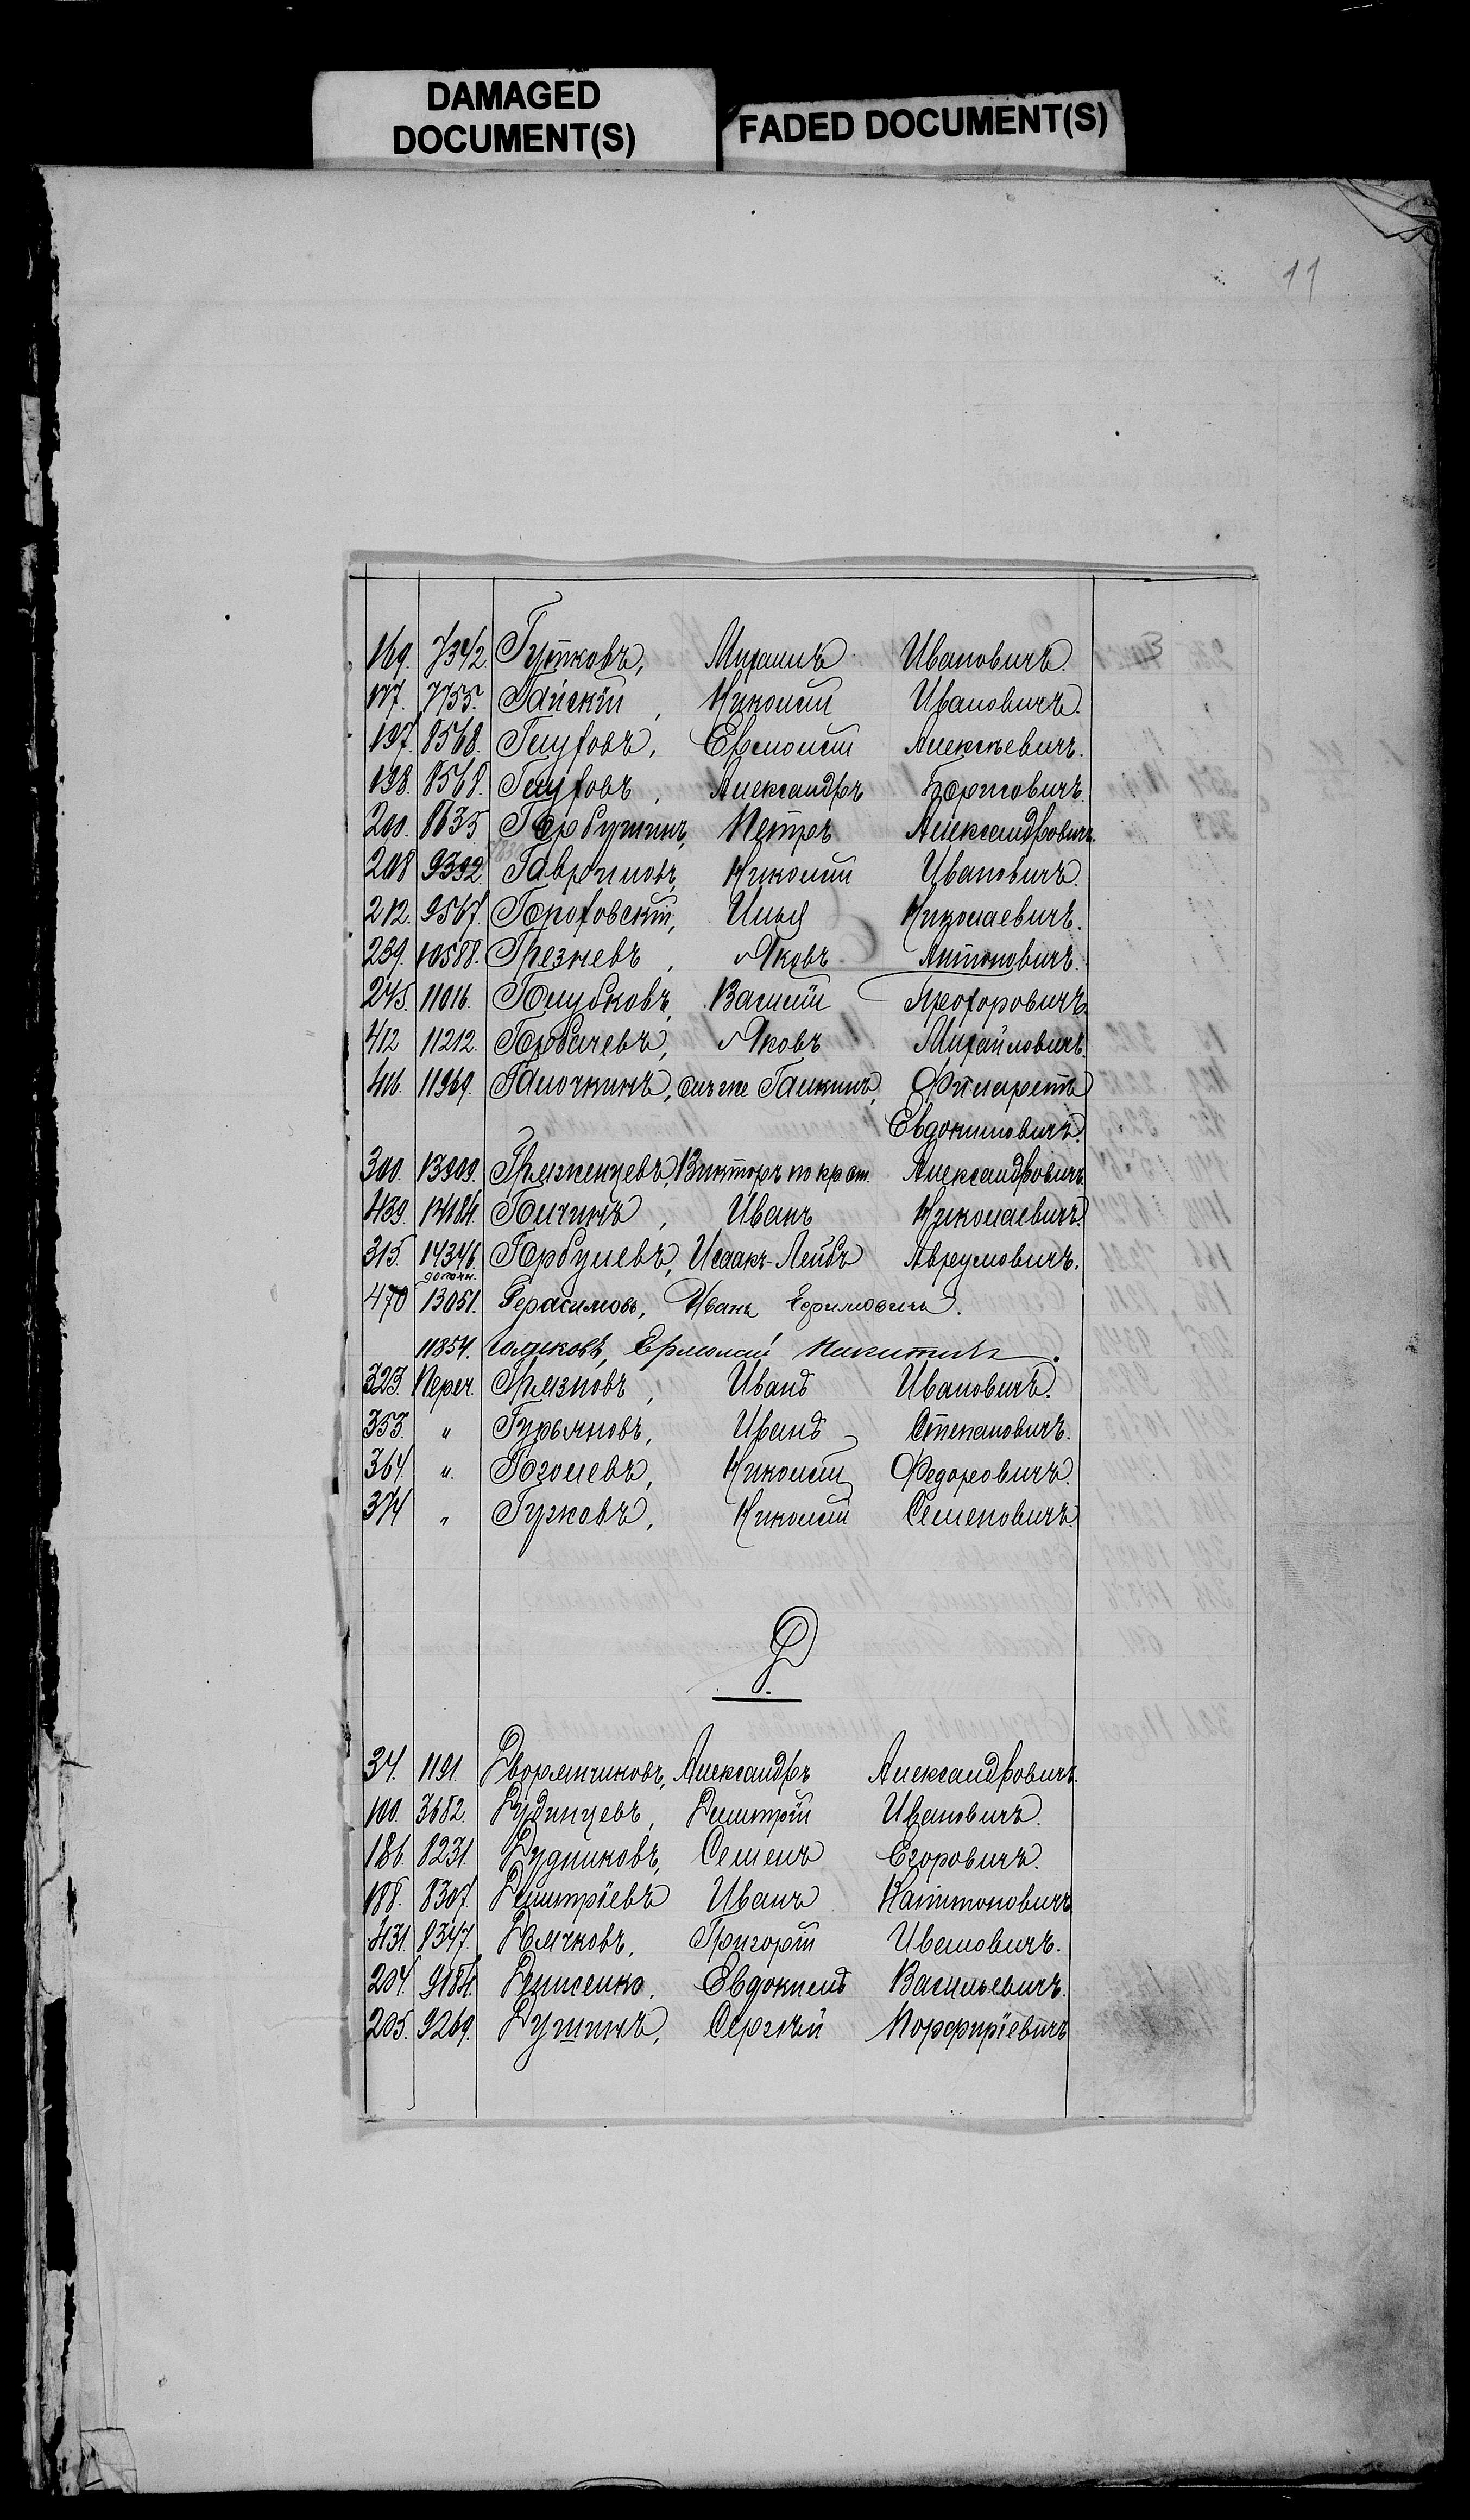 DAMAGED
DOCUMENT(S)
FADED DOCUMENT(S)
11
169. 7342. Гутковъ, Михаилъ Ивановичъ.
177. 7755. Гайскій, Николай Ивановичъ.
197. 8568. Глуховъ, Евмолай Алексѣевичъ.
198. 8568. Глуховъ, Александръ Борисовичъ.
200. 8635 Горбушинъ, Петръ Александровичъ.
208 9392. Гавриловъ, Николай Ивановичъ.
212. 9567. Гноховскій, Илья Николаевичъ.
239. 10588. Грезневъ, Яковъ Антоновичъ.
245. 11016. Голубковъ, Василій Прохоровичъ.
412 11212. Горбачевъ, Яковъ Михайловичъ.
416. 11969. Галочкинъ, онъ же Галкинъ, Филаретъ
Евдокимовичъ.
300. 13909. Гряженцевъ, Викторъ по кр. от. Александровичъ.
439. 14184. Гничинъ, Иванъ Николаевичъ.
315. 14346. Горбулевъ, Исаакъ-Лейбъ Авреумовичъ.
дополн.
470 13051. Герасимовъ, Иванъ Ефимовичъ.
11854. Голиковъ, Ермолай Никитичъ.
323. Переч. Грязновъ, Иванъ Ивановичъ.
353. " Гурьяновъ, Иванъ Степановичъ.
364. " Гоголевъ, Николай Федоровичъ.
374 " Гужовъ, Николай Семеновичъ.
Д.
34. 1191. Дворянчиковъ, Александръ Александровичъ.
100. 3682. Дудинцевъ, Дмитрій Ивановичъ.
186. 8231. Дудниковъ, Семенъ Егоровичъ.
188. 8307. Дмитріевъ Иванъ Капитоновичъ
431. 8347. Дьячковъ, Григорій Ивановичъ.
204. 9184. Денисенко, Евдокимъ Васильевичъ.
205. 9269. Душинъ, Сергѣй Порфиріевичъ